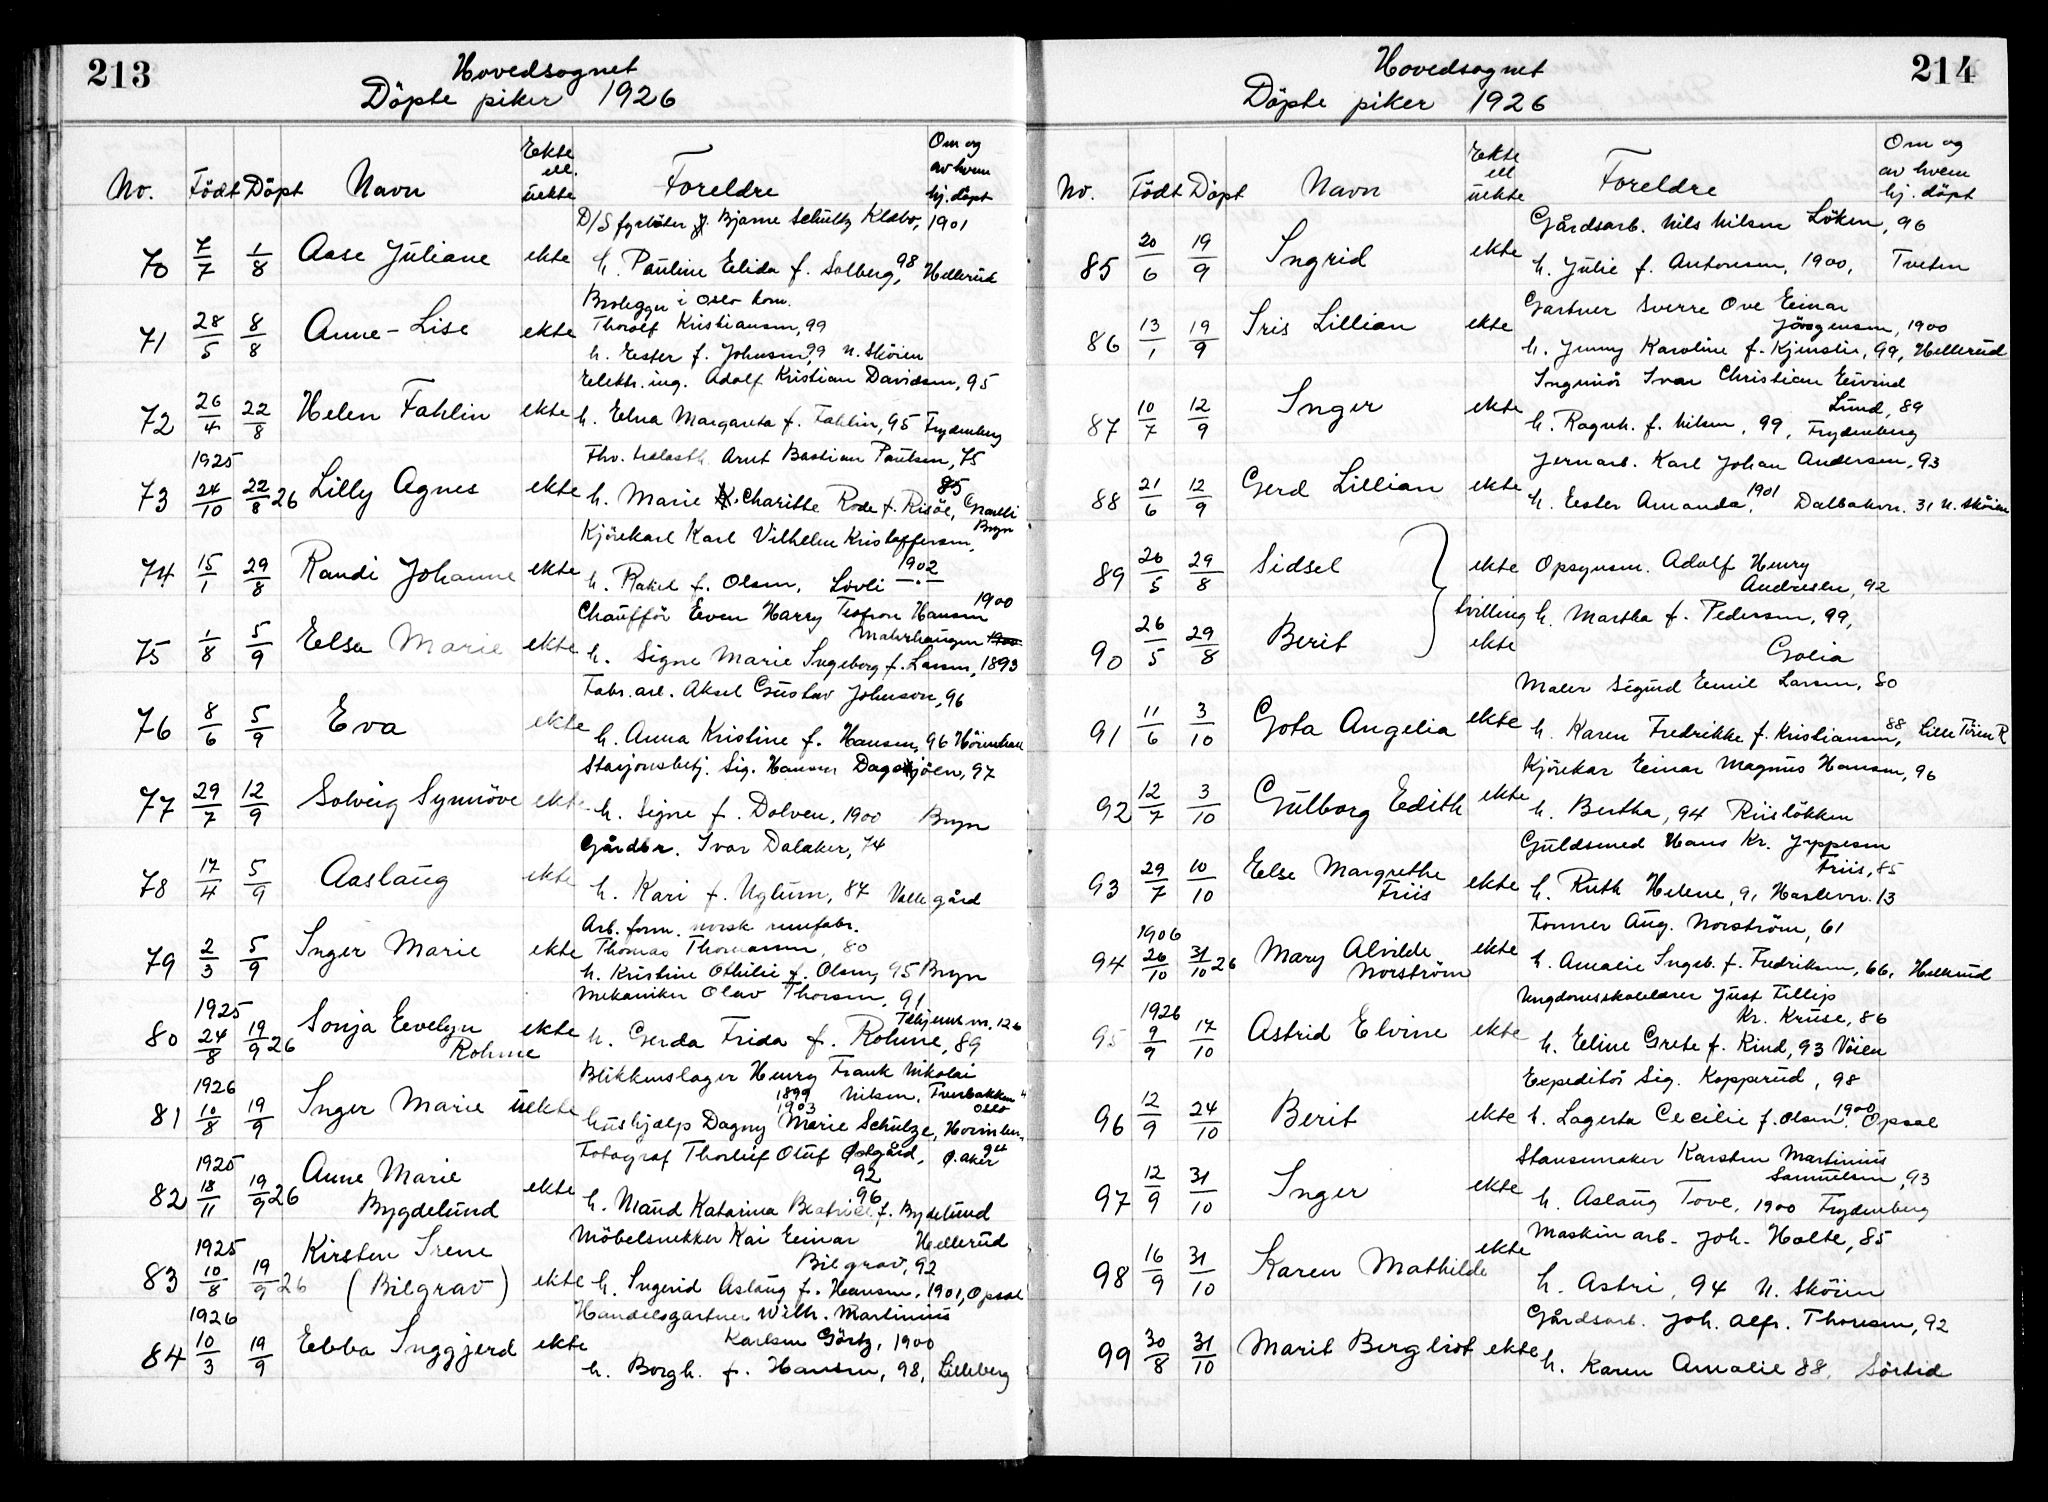 213
Hovedsognet
Döpte piker 1926
No. Födt Döpt Navn Ekte ell. uekte Foreldre Om og av hvem hj. döpt
D/S fyrböter Bjarne Schultz Klæbo, 1901
70 7/7 1/8 Aase Juliane ekte h. Pauline Elida f. Solberg, 98 Hellerud
Brolegger i Oslo kom.
71 28/5 8/8 Anne-Lise ekte Thorolf Kristiansen, 99
h. Ester f. Johnsen, 99 N. Sköien
Elektr. ing. Adolf Kristian Davidsen, 95
72 26/4 22/8 Helen Fahlin ekte h. Elna Margareta f. Fahlin, 95 Frydenberg
1925
Fhv. Arnt Bastian Paulsen, 75
73 24/10 22/8 26 Lilly Agnes ekte h. Marie Charitte Rode f. Risöe, 85 Bryn
Kjörekarl Karl Vilhelm Kristoffersen,
74 15/1 29/8 Randi Johanne ekte h. Rakel f. Olsen, Lövli 1902
Chaufför Even Harry Hansen 1900
75 1/8 5/9 Elsa Marie ekte Malerhaugen
h. Signe Marie Ingeborg f. Larsen, 1893
Fabr. arb. Aksel Gustav Johnson, 96
76 8/6 5/9 Eva ekte h. Anna Kristine f. Hansen, 96
Stasjonsbetj. Sig. Hansen Dagsjöen, 97
77 29/7 12/9 Solveig Synnöve ekte h. Signe f. Dolven, 1900 Bryn
Gårdbr. Ivar Dalaker, 74
78 17/4 5/9 Aaslaug ekte h. Kari f. Uglum, 87 Valle gård
Arb. form. norsk remfabr.
79 2/3 5/9 Inger Marie ekte Thomas Thomassen, 80
h. Kristine Othilie f. Olsen, 95 Bryn
1925
Mekaniker Olav Thorsen, 91
80 24/8 19/9 26 Sonja Evelyn Rohme ekte h. Gerda Frida f. Rohme, 89
1926
Blikkenslager Henry Frank Nikolai
Nilsen, 1899 Oslo
81 10/8 19/9 Inger Marie uekte hushjælp Dagny Marie Schulze, 1903
1925
Fotograf Thorleif Oluf Østgård, Ø. Aker 92
82 18/11 19/9 26 Anne Marie Bygdelund ekte h. Maud Katarina Beatrice f. Bygdelund 96
Hellerud
1925
Möbelsnekker Kai Einar
Bilgrav, 92
83 10/8 19/9 26 Kirsten Irene (Bilgrav) ekte h. Ingerid Aslaug f. Hansen, 1901, Opsal
1926
Handelsgartner Wilh. Martinius
Karlsen Görtz, 1900
84 10/3 19/9 Ebba Inggjerd ekte h. Borgh. f. Hansen, 98, Lilleberg
214
Hovedsognet
Döpte piker 1926
No. Födt Döpt Navn Ekte ell uekte Foreldre Om og av hvem hj. döpt
Gårdsarb. Nils Nilsen Löken, 96
85 20/6 19/9 Ingrid ekte h. Julie f. Antonsen, 1900, Tveten
Gartner Sverre Ove Einar
Jörgensen, 1900
86 13/1 19/9 Iris Lillian ekte h. Jenny Karoline f. Kjenslie, 99, Hellerud
Ingeniör Ivar Christian Eivind
Lund, 89
87 10/7 12/9 Inger ekte h. Ragnh. f. Nilsen, 99, Frydenberg
Jernarb. Karl Johan Andersen, 93
88 21/6 12/9 Gerd Lillian ekte h. Ester Amanda, 1901 Dalbakvn. 31 N. Sköien
89 26/5 29/8 Sidsel ekte Opsynsm. Adolf Henry
Andresen, 92
tvilling h. Martha f. Pedersen, 99,
90 26/5 29/8 Berit ekte Golia
Maler Sigurd Emil Larsen, 80
91 11/6 3/10 Gota Angelia ekte h. Karen Fredrikke f. Kristiansen, 88, Lille Töien R
Kjörekar Einar Magnus Hansen, 96
92 12/7 3/10 Gulborg Edith ekte h. Bertha, 94 Riislökken
Guldsmed Hans Kr. Jeppesen
Friis, 85
93 29/7 10/10 Else Margrethe Friis ekte h. Ruth Helene, 91 Haslevn. 13
1906
Former Aug. Norström, 61
94 26/10 31/10 26 Mary Alvilde Norström ekte h. Amalie Ingeb. f. Fredriksen, 66, Hellerud
1926
Ungdomsskolelærer Just Fillip
Kr. Kruse, 86
95 9/9 17/10 Astrid Elvine ekte h. Eline Grete f. Rind, 93 Vöien
Expeditör Sig. Kopperud, 98
96 12/9 24/10 Berit ekte h. Lagerta Cecilie f. Olsen, 1900 Opsal
Stansemaker Karsten Martinius
Samuelsen, 93
97 12/9 31/10 Inger ekte h. Aslaug Tove, 1900 Frydenberg
Maskinarb. Joh. Holte, 85
98 16/9 31/10 Karen Mathilde ekte h. Astri, 94 N. Sköien
Gårdsarb. Joh. Alfr. Thoresen, 92
99 30/8 31/10 Marit Bergliot ekte h. Karen Amalie 88,